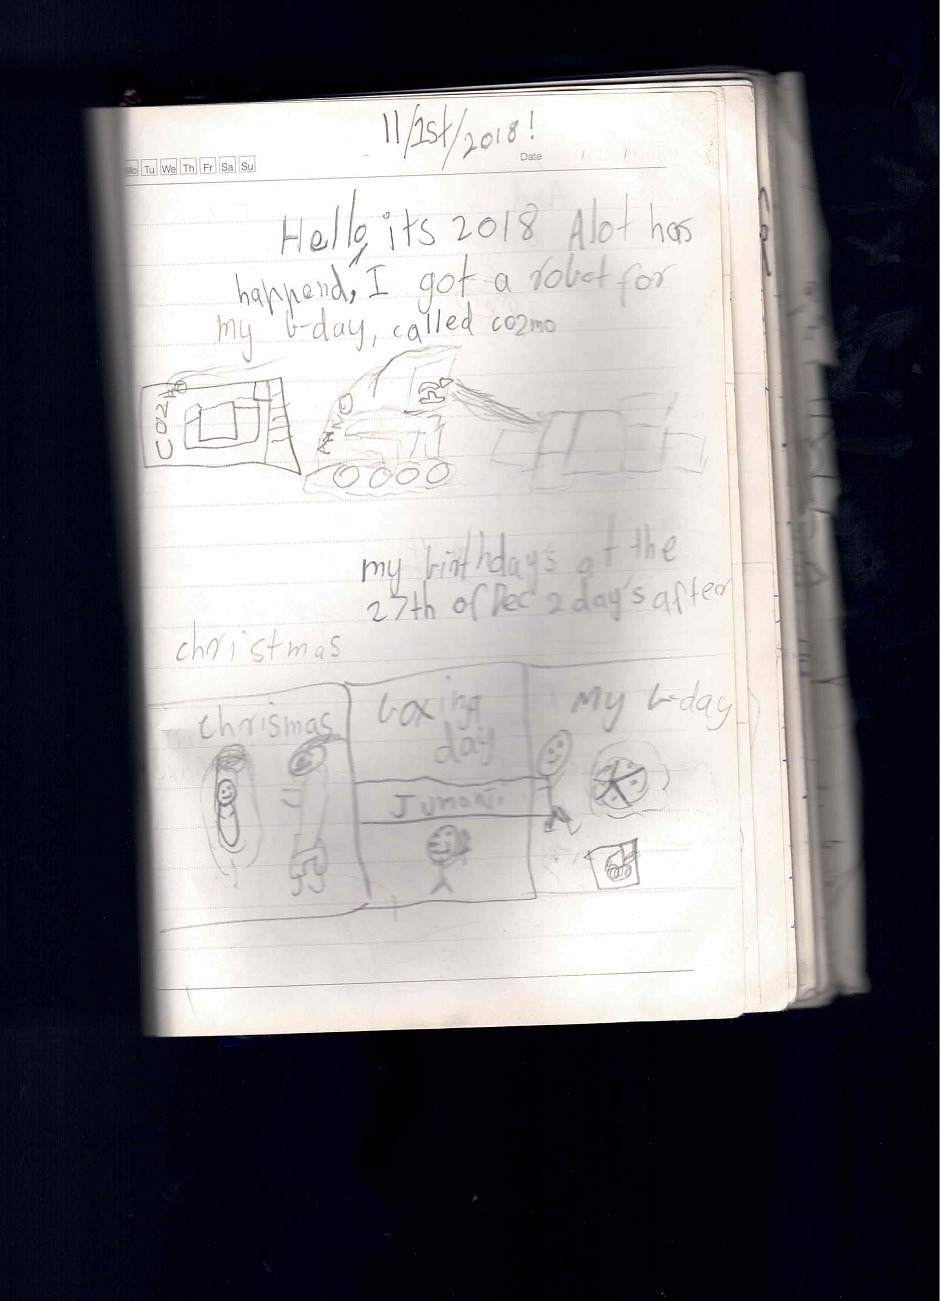 11/1st/2018!
Mo Tu We Th Fr Sa Su
Date / /
Hello, its 2018 Alot has
happend, I got a robot for
my b-day, called cozmo
COZMO
my birthdays at the
27th of Dec 2 day's after
christmas
chrismas
boxing
day
My b-day
Jumanji